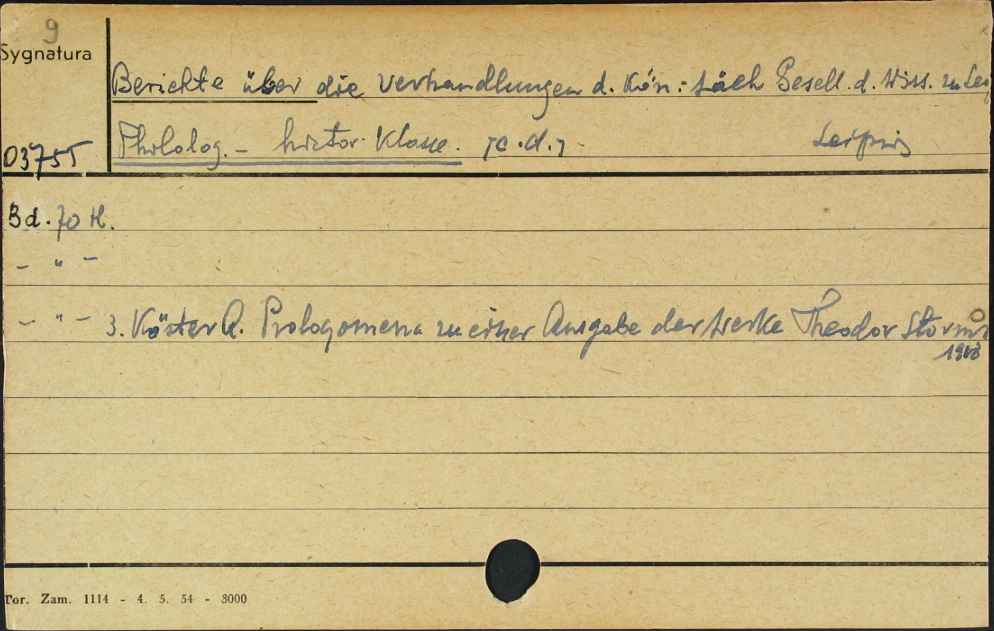 9
Sygnatura
Berichte über die Verhandlungen d. Kön. Säch Gesell. d. Wiss. zu Leip
Philolog. - histor Klasse. [c.d.] Leipzig
03755
Bd. 70 H.
- " -
- " - 3. Köster A. Prologomena zu einer Ausgabe der Werke Theodor Storms
1918
Tor. Zam. 1114 - 4. 5. 54 - 3000